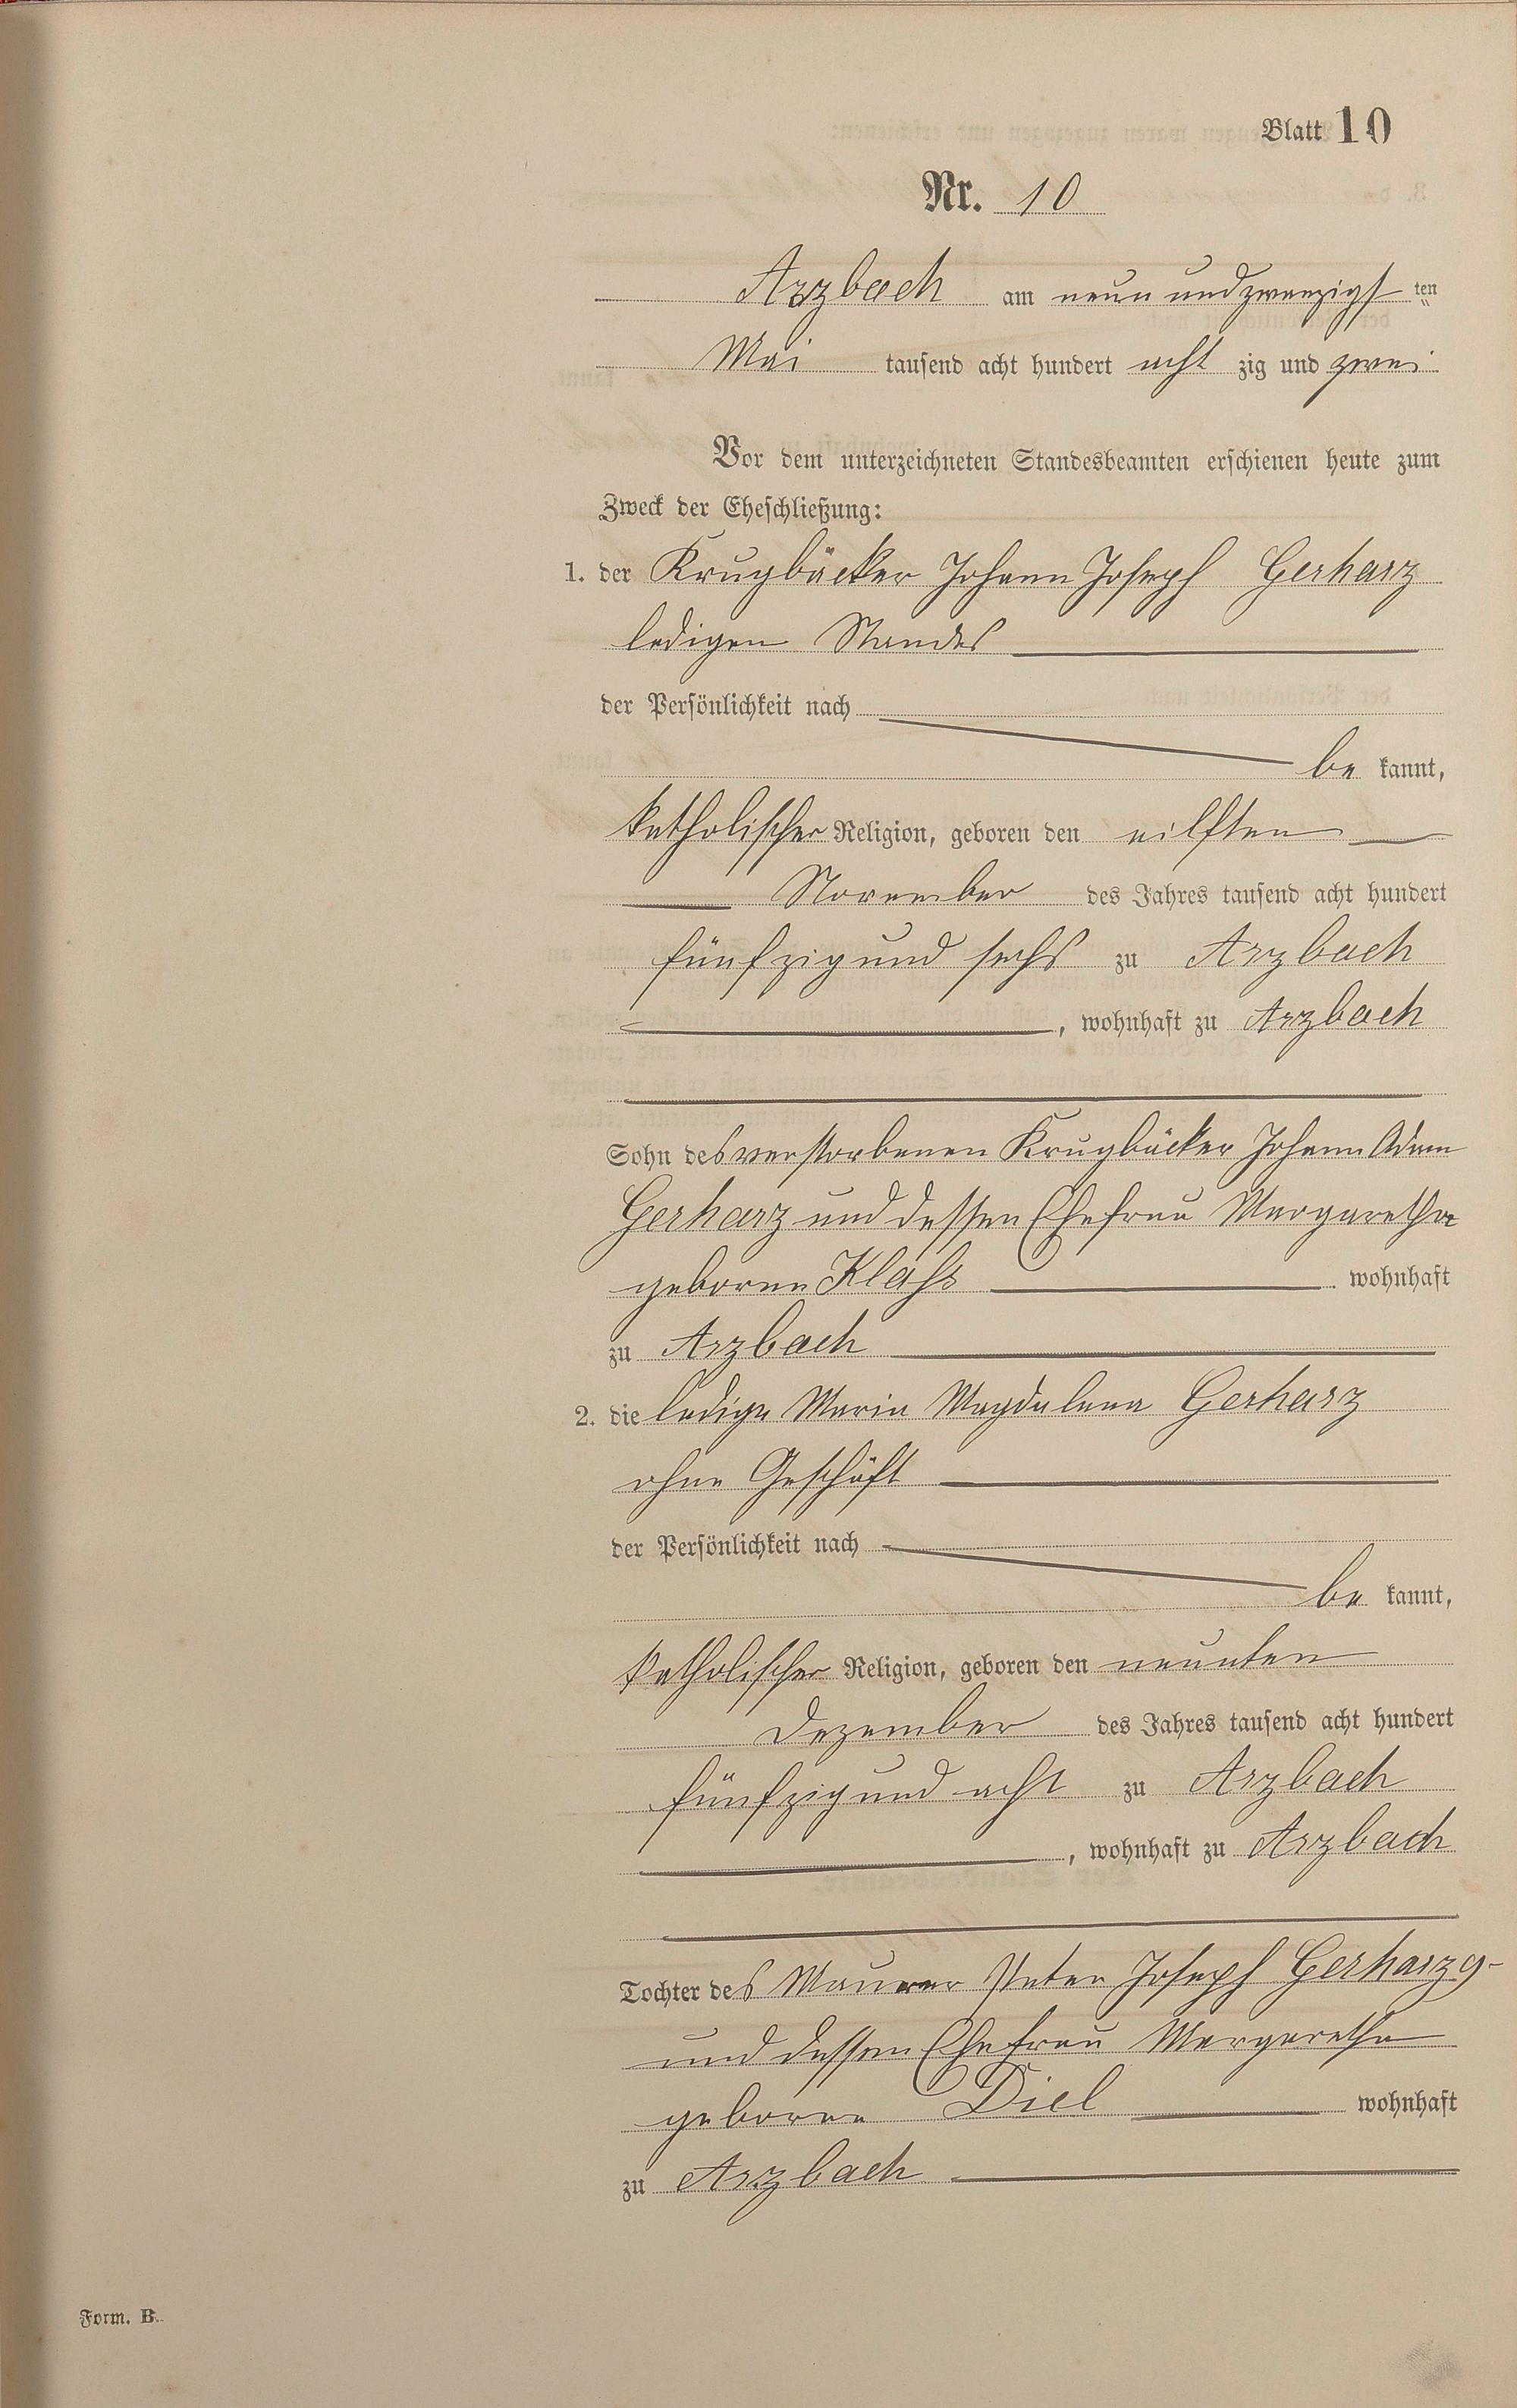 Blatt 10
Nr. 10
Arzbach am neun und zwanzigst ten
Mai tausend acht hundert acht zig und zwei
Vor dem unterzeichneten Standesbeamten erschienen heute zum
Zweck der Eheschließung:
1. der Krugbäcker Johann Joseph Gerharz
ledigen Standes
der Persönlichkeit nach
be kannt,
katholischer Religion, geboren den eilften
November des Jahres tausend acht hundert
fünfzig und sechs zu Arzbach
, wohnhaft zu Arzbach
Sohn des verstorbenen Krugbäcker Johann Adam
Gerharz und dessen Ehefrau Margaretha
geborne Klahs wohnhaft
zu Arzbach
2. die ledige Maria Magdalena Gerharz
ohne Geschäft
der Persönlichkeit nach
be kannt,
katholischer Religion, geboren den neunten
Dezember des Jahres tausend acht hundert
fünfzig und acht zu Arzbach
, wohnhaft zu Arzbach
Tochter des Maurer Peter Joseph Gerharz
und dessen Ehefrau Margaretha
geborne Diel wohnhaft
zu Arzbach
Form. B.